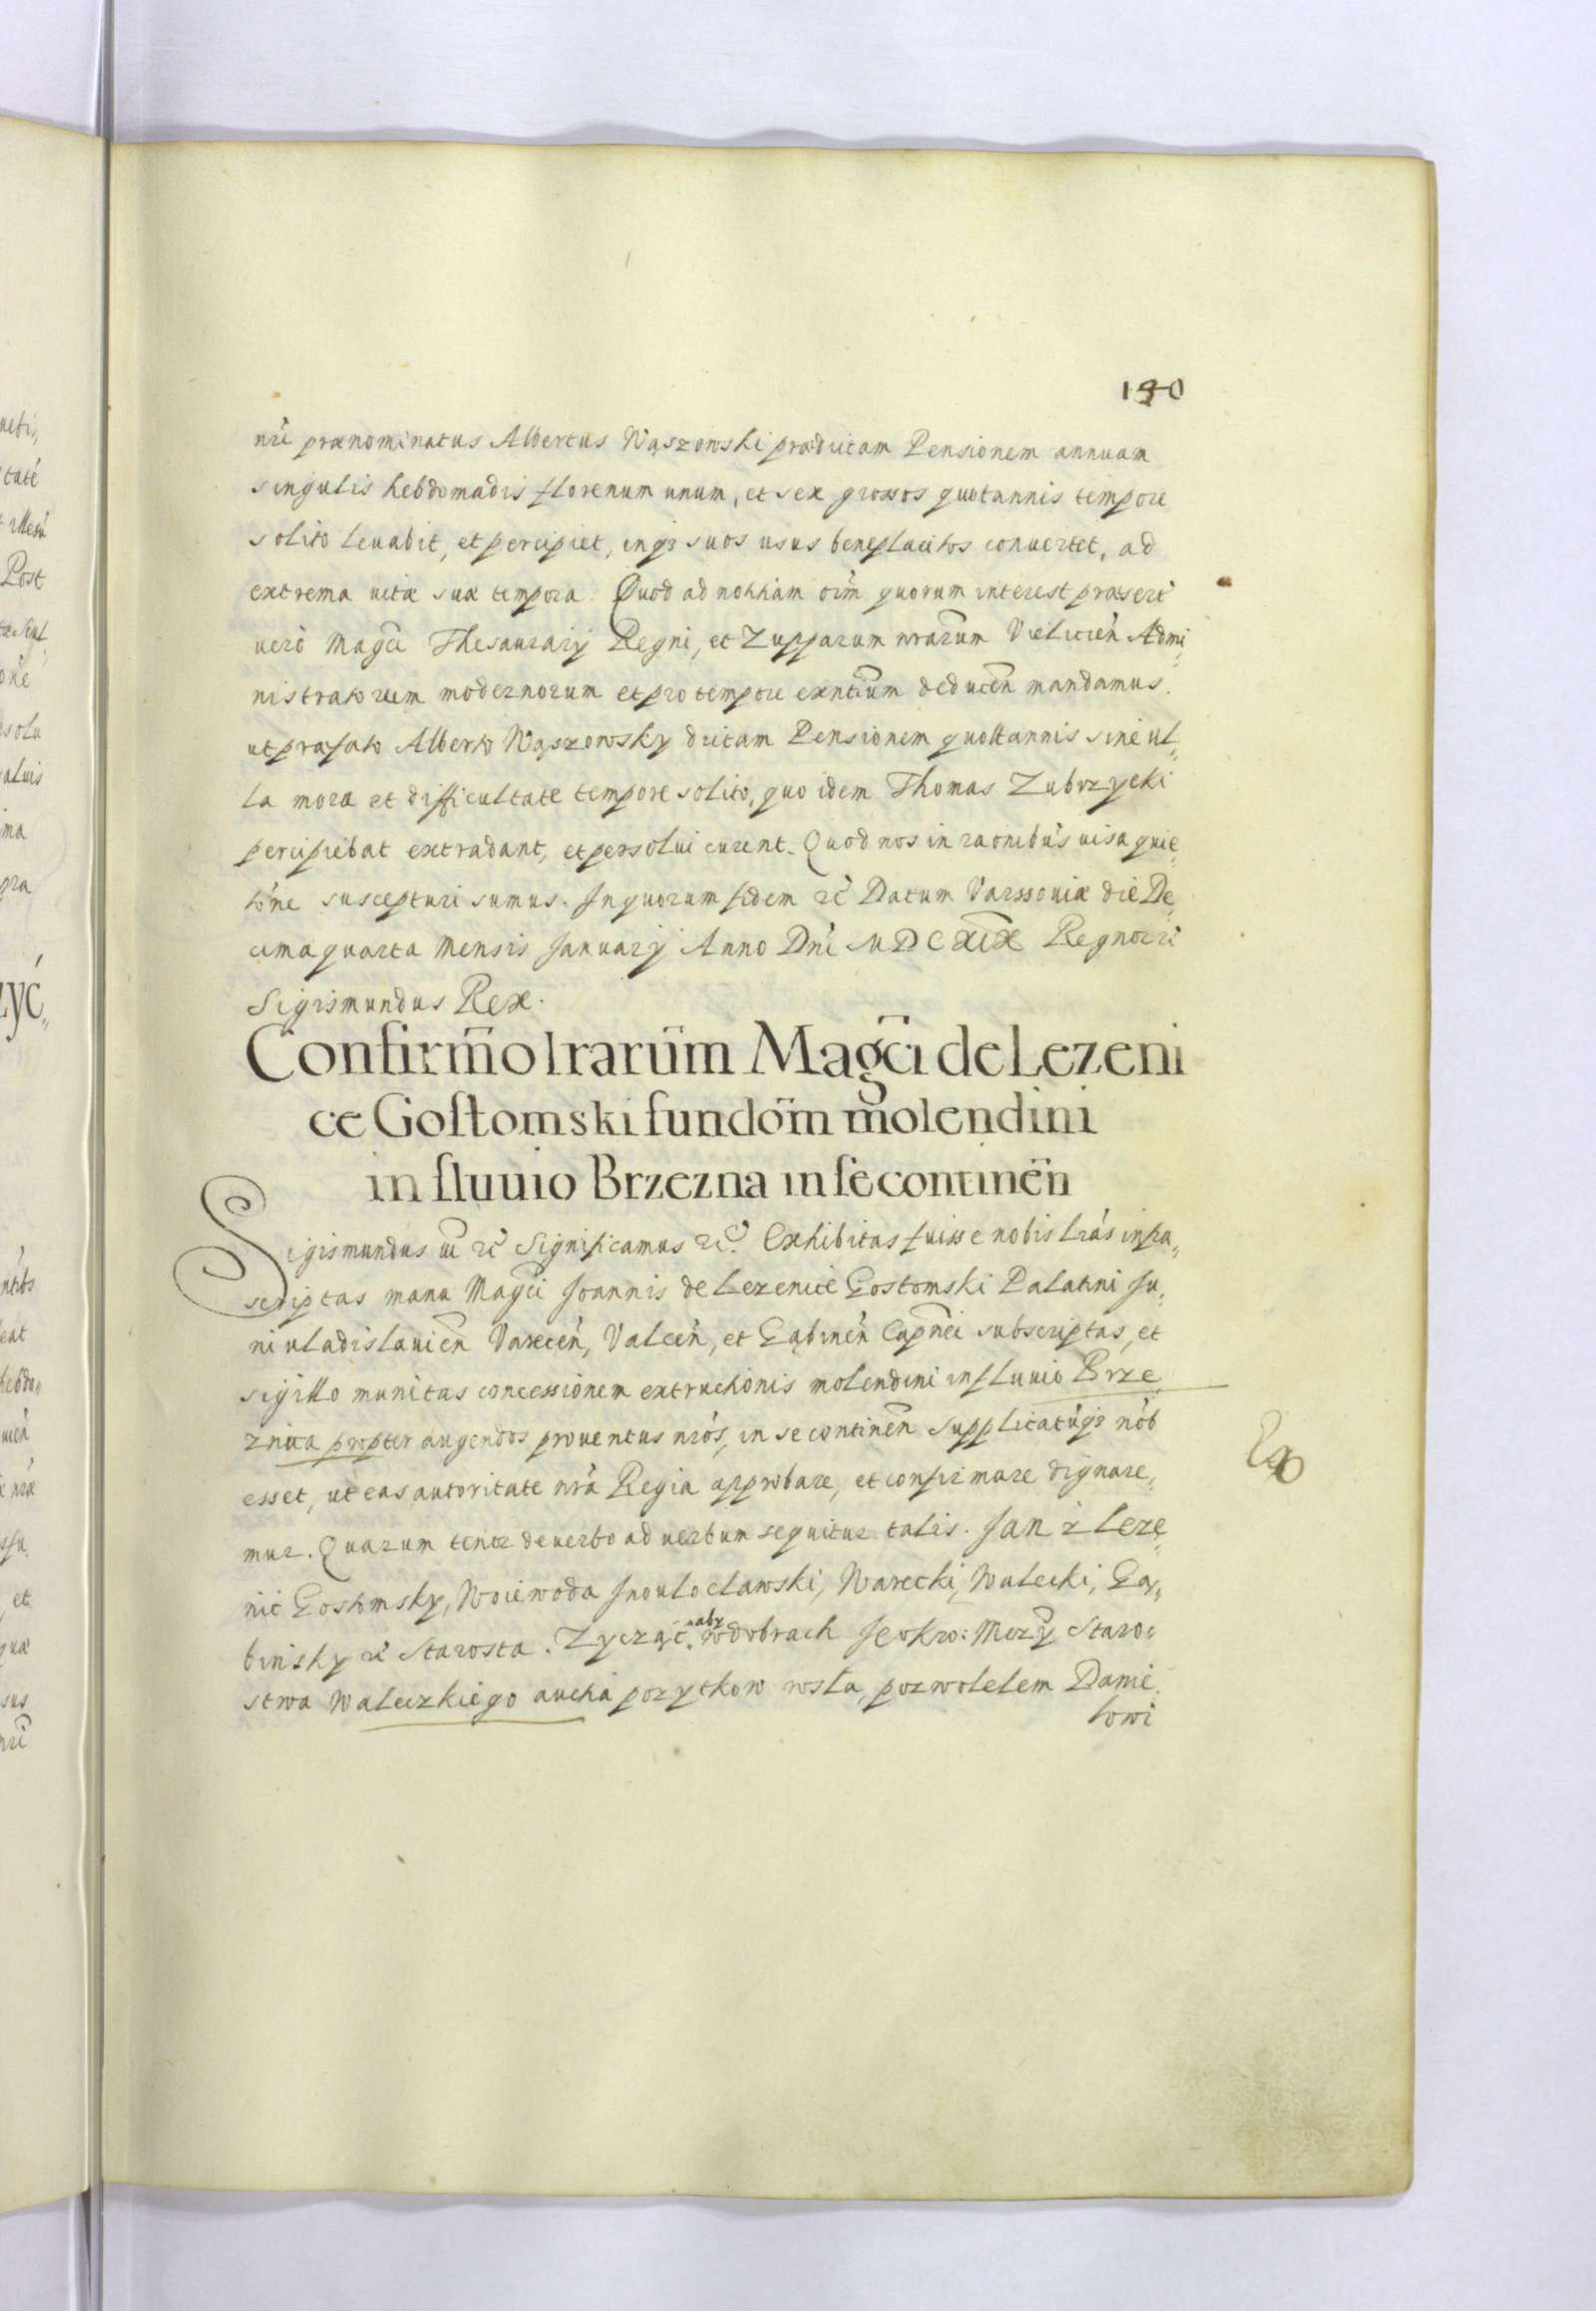 190
nri prænominatus Albertus Wąszowski prædictam Pensionem annuam
singulis hebdomadis florenum unum, et sex grossos quotannis tempore
solito levabit, et percipiet, inqз suos usus beneplacitos convertet, ad
extrema vitæ suæ tempora. Quod ad notitiam oim̃ quorum interest præserĩ
vero Magci Thesaurarij Regni, et Zupparum nrarum Vieliciẽn Admi„
nistratorum modernorum et pro tempore exñtium deducẽn mandamus.
ut præfato Alberto Wąszowsky dictam Pensionem quottannis sine ul„
la mora et difficultate tempore solito, quo idem Thomas Zubrzycki
percipiebat extradant, et persolui curent. Quod nos in raõnibus visa quie„
tõne suscepturi sumus. In quorum fidem ꝛc̃ Datum Varssoviæ die De„
cima quarta Mensis January Anno Dni MDCXIX Regnorũ
Sigismundus Rex.
Confirm̃o lrarum̃ Magci de Lezeni
ce Gostomski fundom̃ molendini
in fluuio Brzezna in se continen̄
Sigismundus iii ꝛc̃ Significamus ꝛc̃. Exhibitas fuisse nobis lrãs infra„
scriptas manu Magci Joannis de Lezenice Gostomski Palatini Ju„
niuladislauien̄ Varecen̄, Valcen̄, et Gąbinen̄ Capnei subscriptas, et
sigillo munitas concessionem extructionis molendini in fluuio Brze„
znica propter augendos prouentus nrõs, in se continen̄ supplicatũqз nõb
esset, ut eas autoritate nrã Regia approbare, et confirmare dignare„
mur. Quarum tenor de verbo ad verbum sequitur talis. Jan z Leze„
nic Gostomsky, Woiewoda Inowloclawski, Warecki, Walecki, Gą„
binsky ꝛc̃ Starosta. Zycząc aby w dobrach Je° Kro: Mczy Staro„
stwa Waleczkiego aucta pozytkow rosła, pozwolelem Danie„
lowi